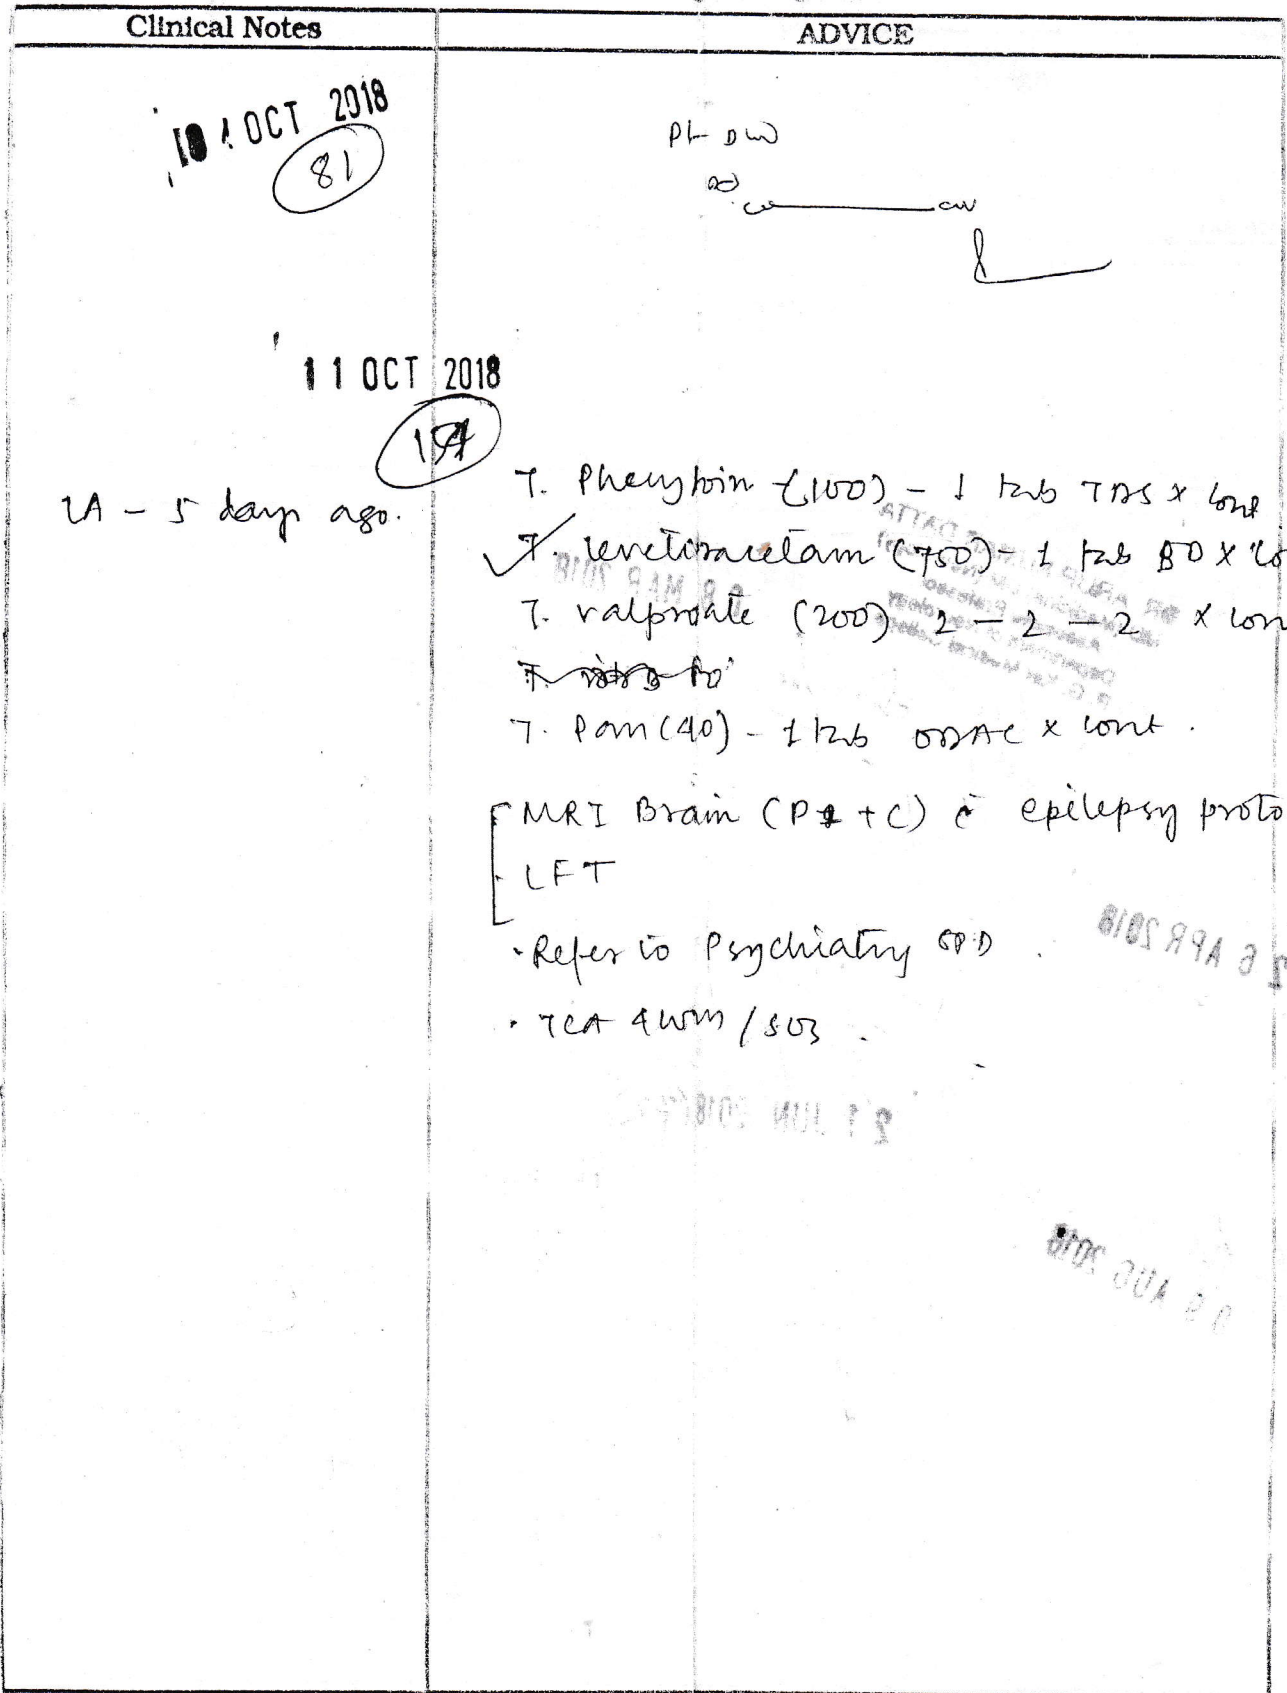 Clinical Notes
ADVICE
4 OCT 2018
81
Pt
11 OCT 2018
LA - 5 days ago.
T. Phenytoin (100) - 1 tab TDS x cont
T. Levetiracetam (750) - 1 tab BD x co
T. valproate (200) 2 - 2 - 2 x con
T. Pan (40) - 1 tab ODAC x cont.
MRI Brain (P + C) c̄ epilepsy proto
- LFT
• Refer to Psychiatry OPD.
• TCA 4 wks / SOS.
08 MAR 2018
26 APR 2018
21 JUN 2018
AUG 2018